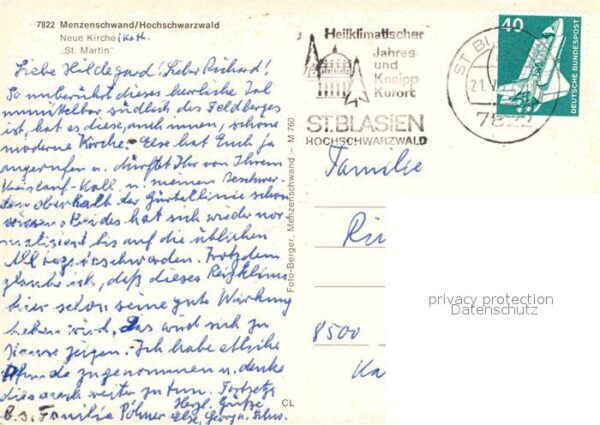 7822 Menzenschwand/Hochschwarzwald
Neue Kirche (kath.
„St. Martin“
Liebe Hildegard! Lieber Richard!
So unberührt dieses herrliche Tal
unmittelbar südlich des Feldberges
ist, hat es diese, auch innen, schöne
moderne Kirche. Else hat Euch ja
angerufen u. dürftet Ihr von Ihrem
Kreislauf-Koll. u. meinen Beschwer-
den oberhalb der Gürtellinie schon
wissen. Beides hat sich wieder nor
malisiert bis auf die üblichen
Alltagsbeschwerden. Trotzdem
glaube ich, daß dieses Reizklima
hier schon seine gute Wirkung
haben wird, das wird sich zu
Hause zeigen. Ich habe etliche
Pfunde zugenommen u. denke
dies auch weiter zu tun.
Herzl. Grüße
Familie
Foto-Berger, Menzenschwand – M 760
CL
Heilklimatischer
Jahres-
und
Kneipp
Kurort
ST. BLASIEN
HOCHSCHWARZWALD
ST. BL
21.
7822
40
DEUTSCHE BUNDESPOST
Familie
8500
privacy protection
Datenschutz